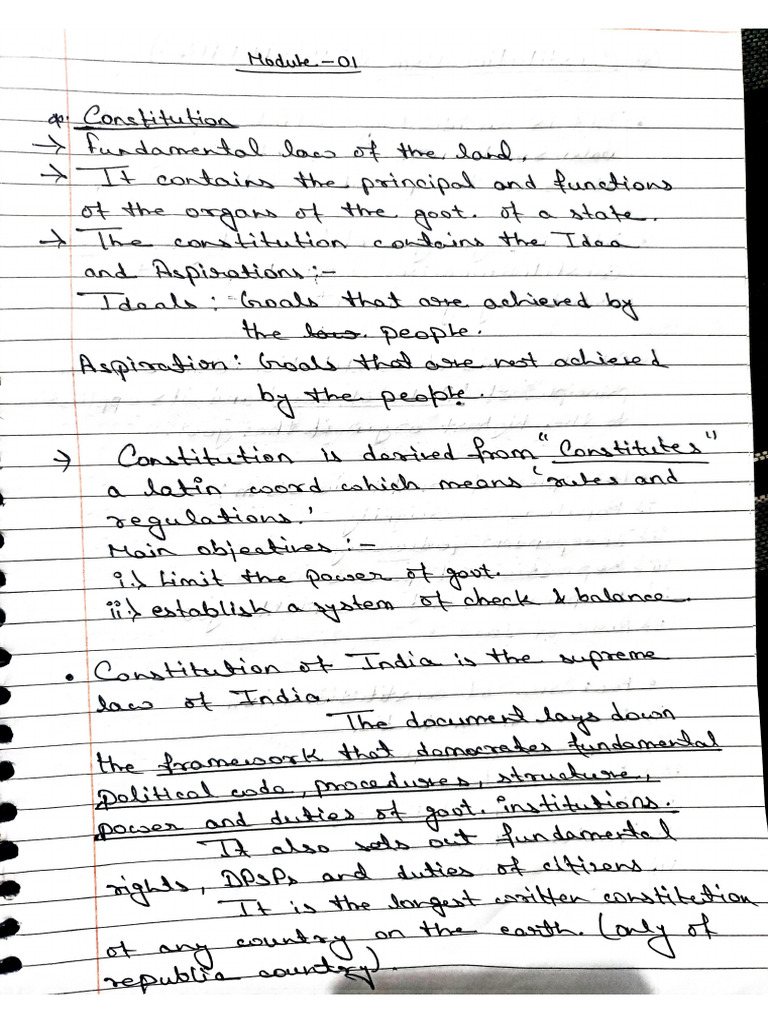 Module-01
Constitution
→ Fundamental law of the land.
→ It contains the principal and functions
of the organs of the govt. of a state.
→ The constitution contains the Idea
and Aspirations :-
Ideals : Goals that are achieved by
the law. people.
Aspiration: Goals that are not achieved
by the people.
→ Constitution is derived from "Constitutes"
a latin word which means 'rules and
regulations.'
Main objectives :-
i.) Limit the power of govt.
ii.) establish a system of check & balance.
• Constitution of India is the supreme
law of India.
The document lays down
the framework that democrates fundamental
political code, procedures, structure,
power and duties of govt. institutions.
It also sets out fundamental
rights, DPSPs and duties of citizens.
It is the largest written constitution
of any country on the earth. (only of
republic country).